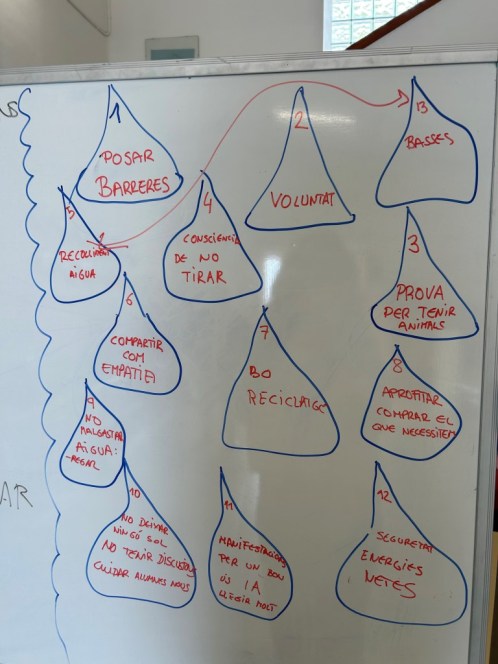 1
POSAR
BARRERES
2
VOLUNTAT
13
BASSES
5
RECOLLIMENT
AIGUA
4
CONSCIENCIA
DE NO
TIRAR
3
PROVA
PER TENIR
ANIMALS
6
COMPARTIR
COM
EMPATIA
7
BO
RECICLATGE
8
APROFITAR
COMPRAR EL
QUE NECESSITEM
9
NO
MALGASTAR
AIGUA:
-REGAR
10
NO DEIXAR
NINGÚ SOL
NO TENIR DISCUSIONS
CUIDAR ALUMNES NOUS
11
MANIFESTACIONS
PER UN BON
ÚS I A
LLEGIR MOLT
12
SEGURETAT
ENERGIES
NETES
AR